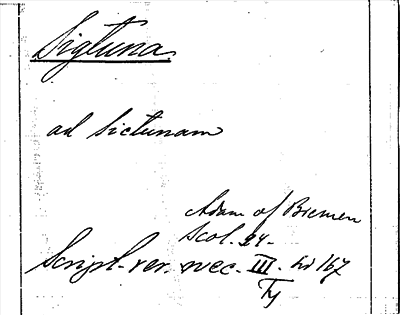 Sigtuna
ad Sictunam
Adam of Bremen
Scol. 24.
Script. rer. svec. III. hi 167
Ty